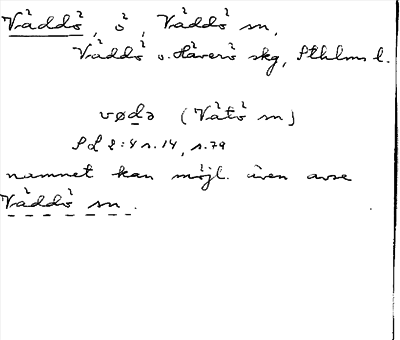 Väddö, ö, Väddö sn,
Väddö o. Häverö skg, Sthlms l.
vødə (Vätö sn)
SL 2:4 s. 14, s. 79
namnet kan möjl. även avse
Väddö sn.